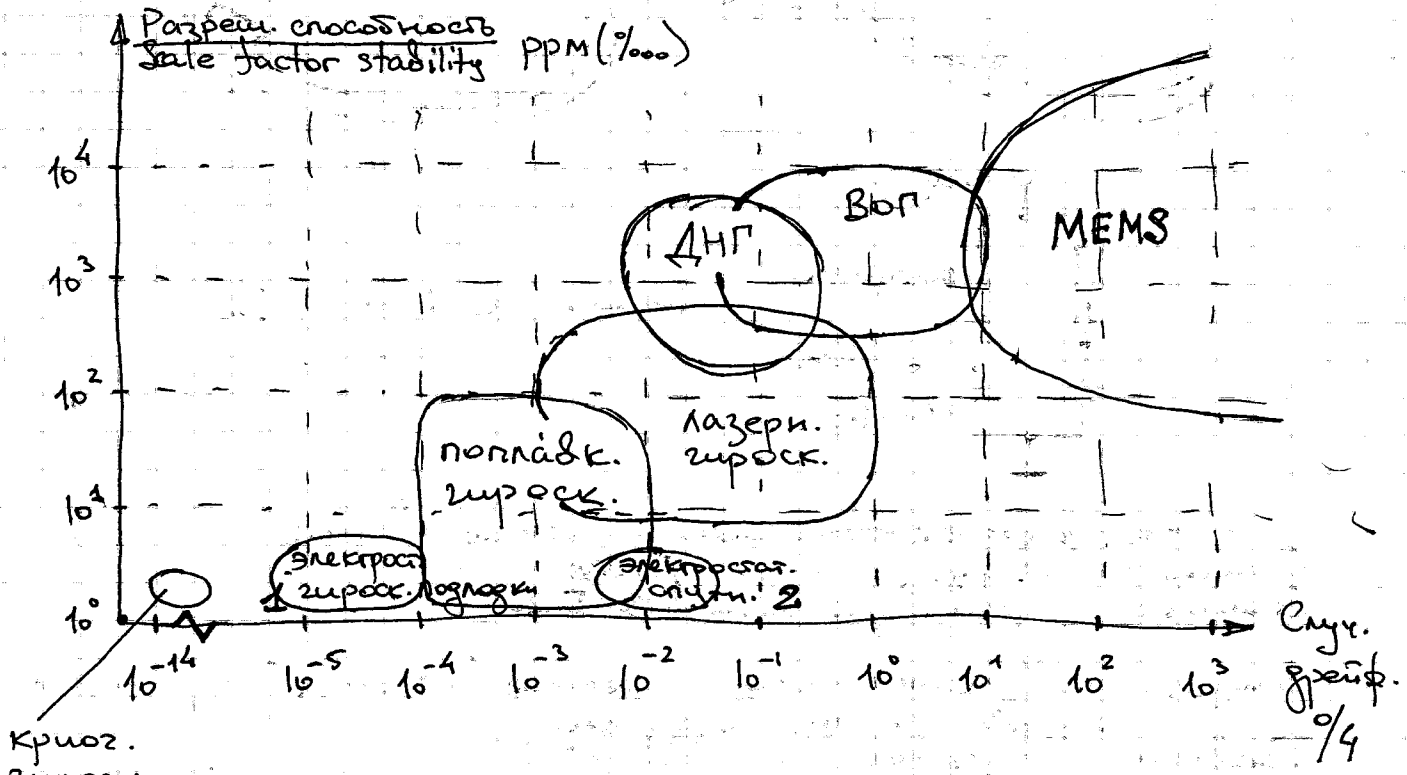 Разреш. способность
Scale factor stability ppm (%ooo)
10⁴
10³
10²
10¹
10⁰
ДНГ
ВОГ
MEMS
лазерн.
гироск.
поплавк.
гироск.
электрост.
1 гироск. подлодки
электростат.
спутн. 2
10⁻¹⁴ 10⁻⁵ 10⁻⁴ 10⁻³ 10⁻² 10⁻¹ 10⁰ 10¹ 10² 10³
Случ.
дрейф.
°/ч
криог.